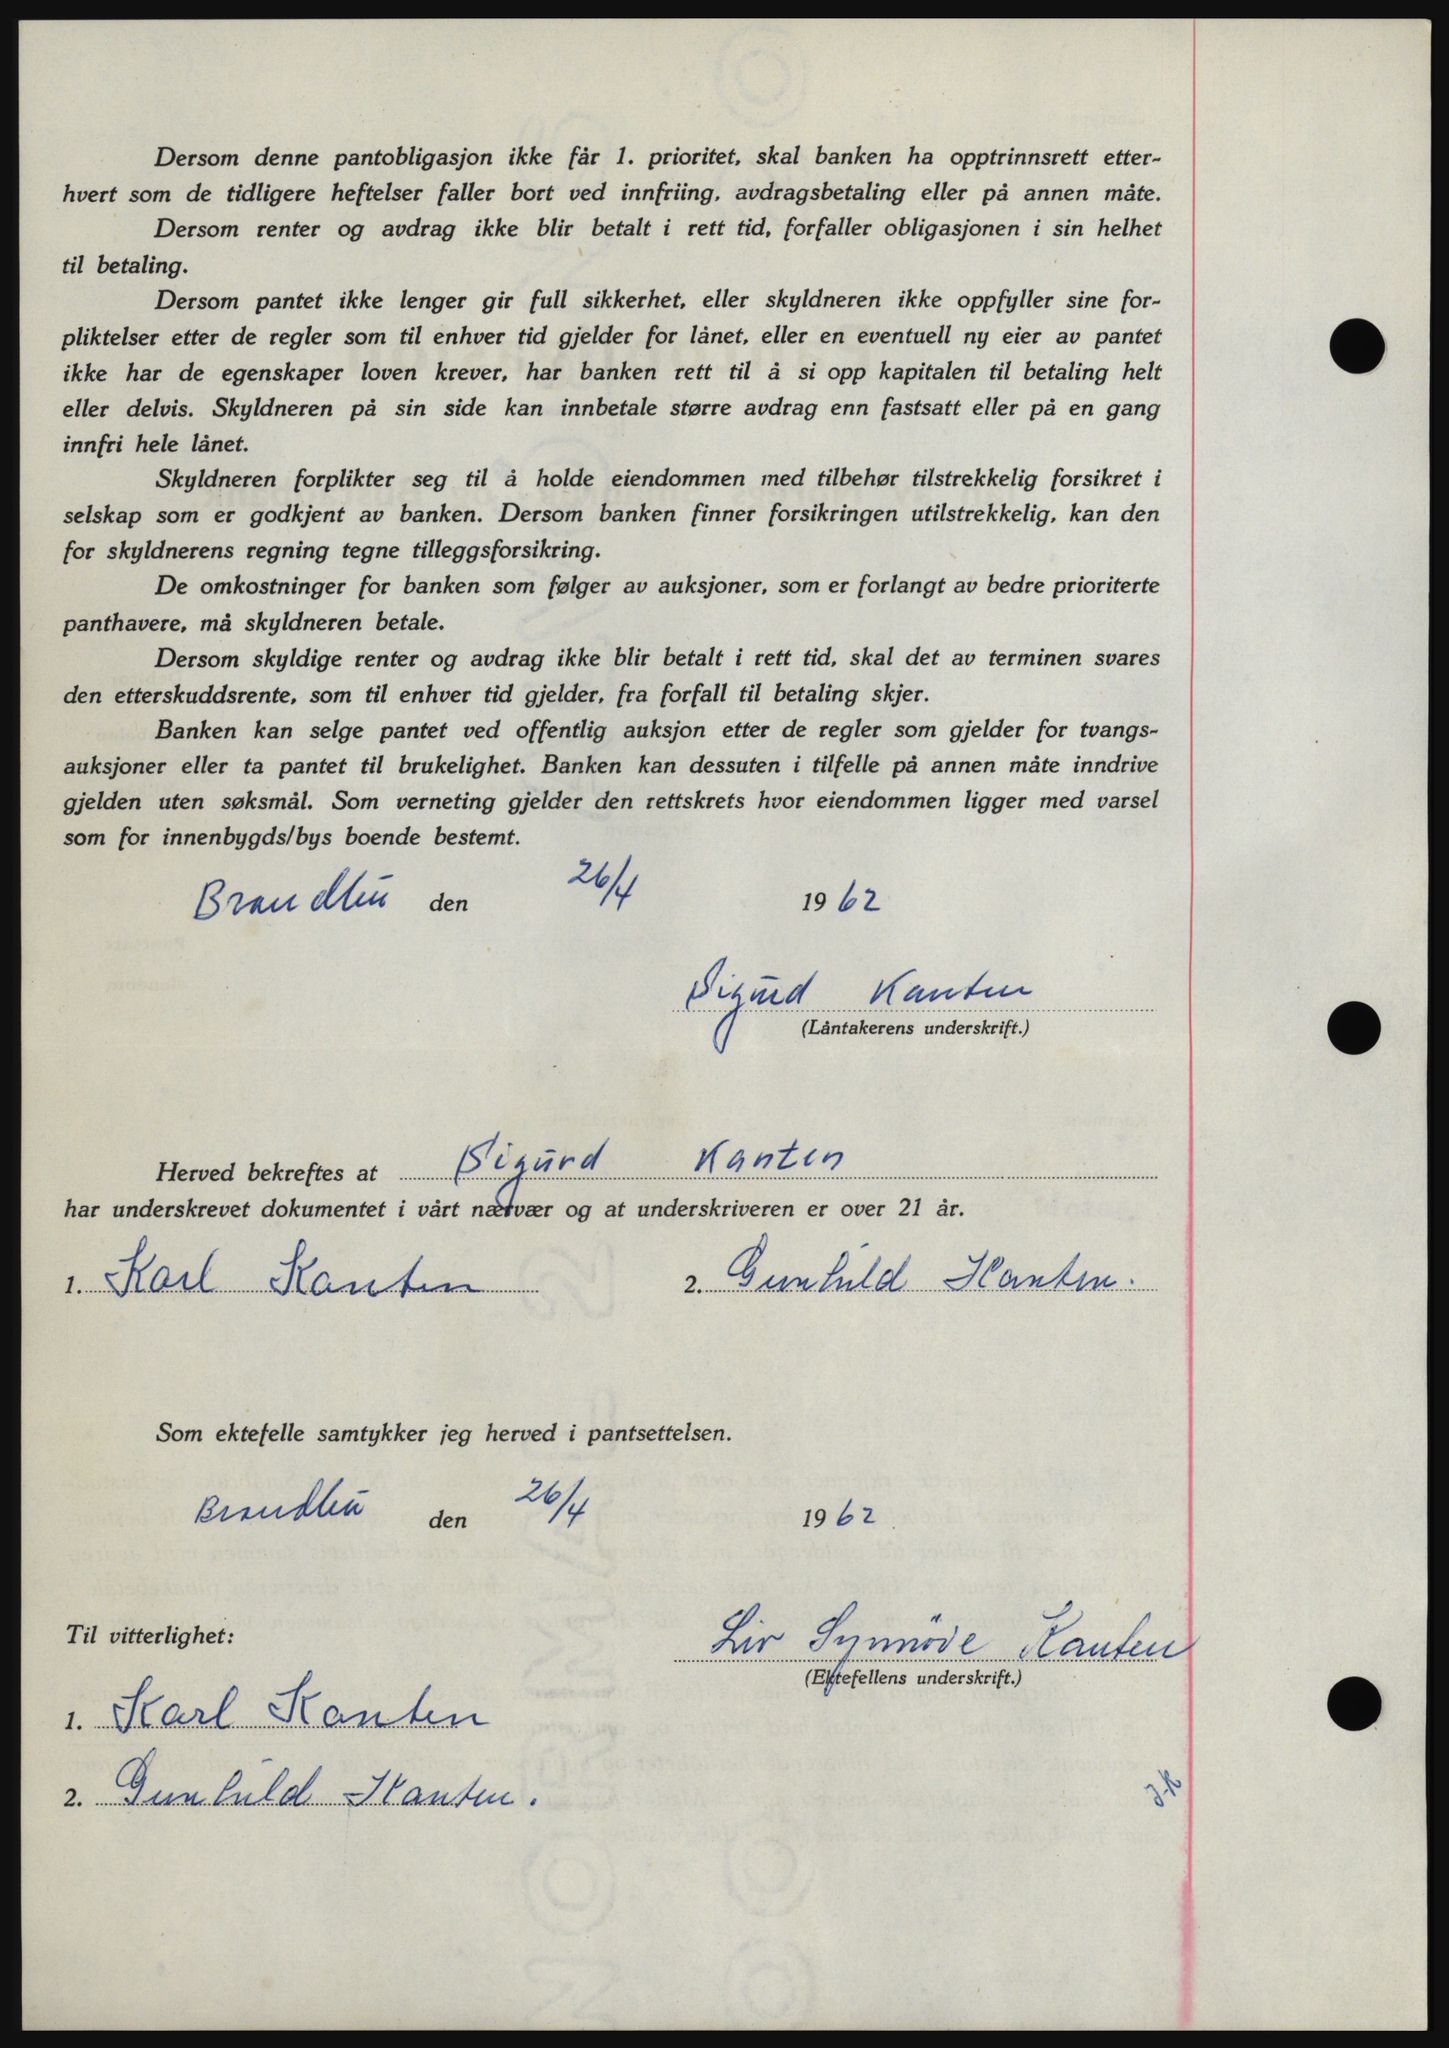 Dersom denne pantobligasjon ikke får 1. prioritet, skal banken ha opptrinnsrett etter-
hvert som de tidligere heftelser faller bort ved innfriing, avdragsbetaling eller på annen måte.
Dersom renter og avdrag ikke blir betalt i rett tid, forfaller obligasjonen i sin helhet
til betaling.
Dersom pantet ikke lenger gir full sikkerhet, eller skyldneren ikke oppfyller sine for-
pliktelser etter de regler som til enhver tid gjelder for lånet, eller en eventuell ny eier av pantet
ikke har de egenskaper loven krever, har banken rett til å si opp kapitalen til betaling helt
eller delvis. Skyldneren på sin side kan innbetale større avdrag enn fastsatt eller på en gang
innfri hele lånet.
Skyldneren forplikter seg til å holde eiendommen med tilbehør tilstrekkelig forsikret i
selskap som er godkjent av banken. Dersom banken finner forsikringen utilstrekkelig, kan den
for skyldnerens regning tegne tilleggsforsikring.
De omkostninger for banken som følger av auksjoner, som er forlangt av bedre prioriterte
panthavere, må skyldneren betale.
Dersom skyldige renter og avdrag ikke blir betalt i rett tid, skal det av terminen svares
den etterskuddsrente, som til enhver tid gjelder, fra forfall til betaling skjer.
Banken kan selge pantet ved offentlig auksjon etter de regler som gjelder for tvangs-
auksjoner eller ta pantet til brukelighet. Banken kan dessuten i tilfelle på annen måte inndrive
gjelden uten søksmål. Som verneting gjelder den rettskrets hvor eiendommen ligger med varsel
som for innenbygds/bys boende bestemt.
Brandbu den 26/4 1962
Sigurd Kanten
(Låntakerens underskrift.)
Herved bekreftes at Sigurd Kanten
har underskrevet dokumentet i vårt nærvær og at underskriveren er over 21 år.
1. Karl Kanten 2. Gunhild Kanten.
Som ektefelle samtykker jeg herved i pantsettelsen.
Brandbu den 26/4 1962
Til vitterlighet: Liv Synnöve Kanten
(Ektefellens underskrift.)
1. Karl Kanten
2. Gunhild Kanten.